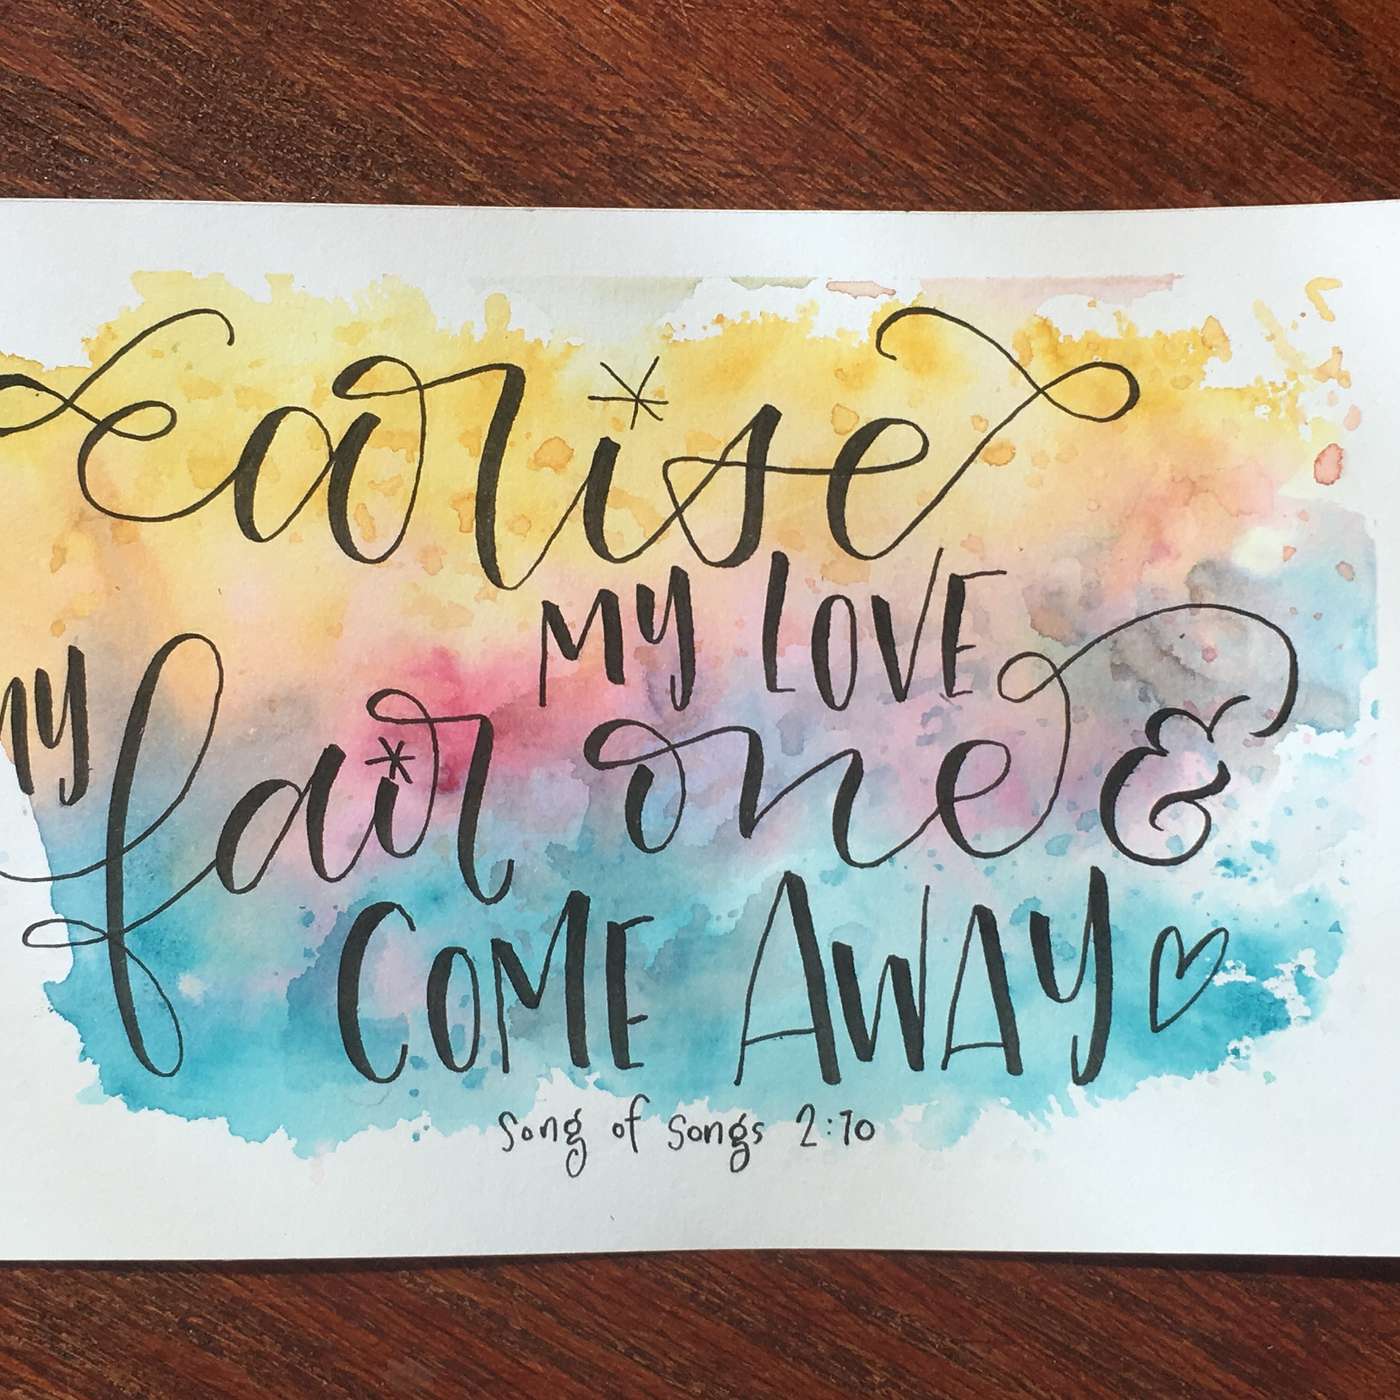 arise
MY LOVE
MY fair one &
COME AWAY
Song of Songs 2:10